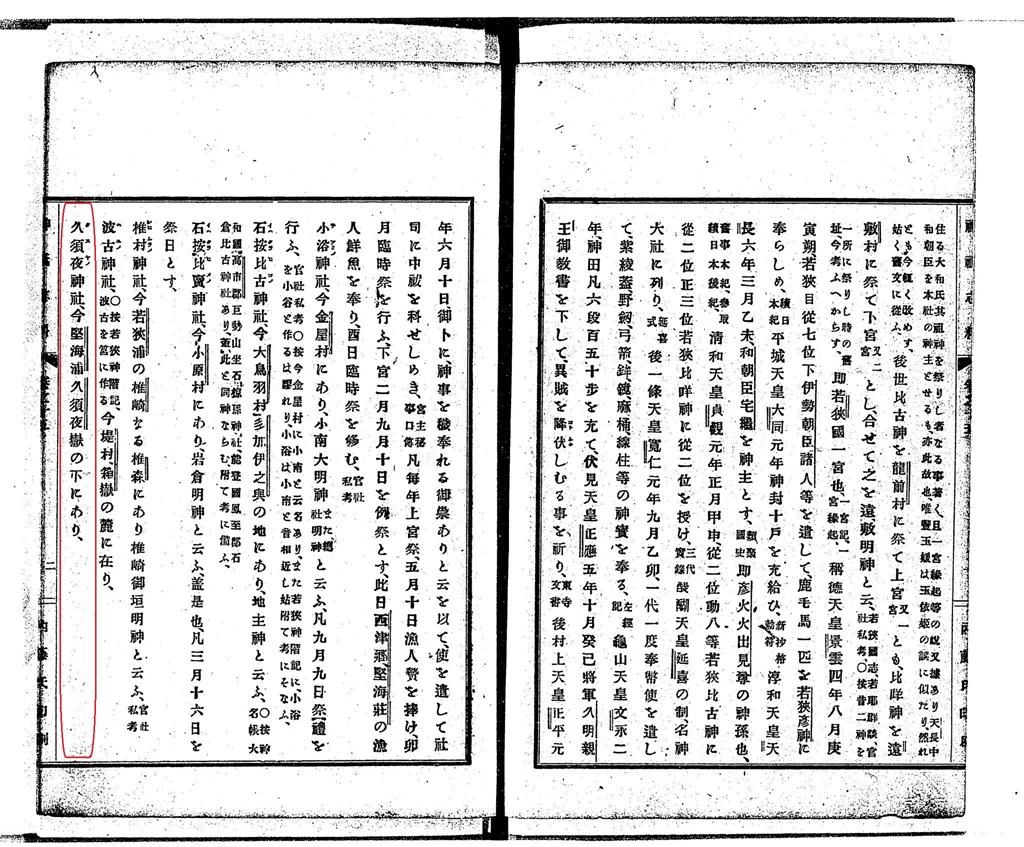 住る大和氏其祖神を祭りし者なる事著く、且一宮縁起等の說又據あり天長中
和朝臣を本社の神主とせるも、亦此故也、唯豐玉媛は玉依姫の誤に似たり然れ
とも今輙く改めす、姑く舊文に從ふ、後世比古神を龍前村に祭て上宮又一宮とも、比咩神を遠
敷村に祭て下宮又二宮とし、合せて之を遠敷明神と云、若狹國志、若耶群談、官社私考、〇按昔二神を
一所に祭りし時の舊址、今考ふへからす、即若狹國一宮也、一宮記、一宮縁起、稱德天皇景雲四年八月庚
寅朔、若狹目從七位下伊勢朝臣諸人等を遣して鹿毛馬一匹を若狹彦神に
奉らしめ、續日本紀平城天皇大同元年神封十戶を充給ひ、新抄格勅符淳和天皇天
長六年三月乙未、和朝臣宅繼を神主とす、類聚國史即彦火火出見尊の神孫也、
舊事本紀參取續日本後紀、清和天皇貞觀元年正月甲申、從二位勳八等若狹比古神に
從二位正三位若狹比咩神に從二位を授け、三代實錄醍醐天皇延喜の制、名神
大社に列り、延喜式後一條天皇寬仁元年九月乙卯、一代一度奉幣使を遣し
て、紫綾蓋野劔、弓箭、鉾、鏡、麻桶、線柱等の神寶を奉る、左經記龜山天皇文永二
年、神田凡六段百五十步を充て、伏見天皇正應五年十月癸巳、將軍久明親
王御敎書を下して、異賊を降伏しむる事を祈り、東寺文書後村上天皇正平元
年六月十日御卜に神事を穢奉れる御祟ありと云を以て、使を遣して社
司に中祓を科せしめき、宮主秘事口傳凡每年上宮祭、五月十日漁人贄を捧け、卯
月臨時祭を行ふ、下宮二月九月十日を例祭とす、此日西津鄕堅海莊の漁
人鮮魚を奉り、酉日臨時祭を修む、官社私考
小浴神社、今金屋村にあり、小南大明神また總社明神と云ふ、凡九月九日祭禮を
行ふ、官社私考〇按今金屋村に小南と云名あり、また若狹神階記に、小浴を小谷と作るは謬れり、小浴は小南と音相近し姑附て考にそなふ、
石按比古神社、今大鳥羽村彡加伊之奧の地にあり、地主神と云ふ、〇按神名帳大
和國高市郡巨勢山坐石椋孫神社、能登國鳳至郡石倉比古神社あり蓋此と同神ならむ、附て考に備ふ、
石按比賣神社、今小原村にあり、岩倉明神と云ふ、蓋是也、凡三月十六日を
祭日とす、
椎村神社、今若狹浦の椎崎なる椎森にあり椎崎御垣明神と云ふ、官社私考
波古神社、〇按若狹神階記、波古を筥に作る今堤村箱嶽の麓に在り、
久須夜神社、今堅海浦久須夜嶽の下にあり、